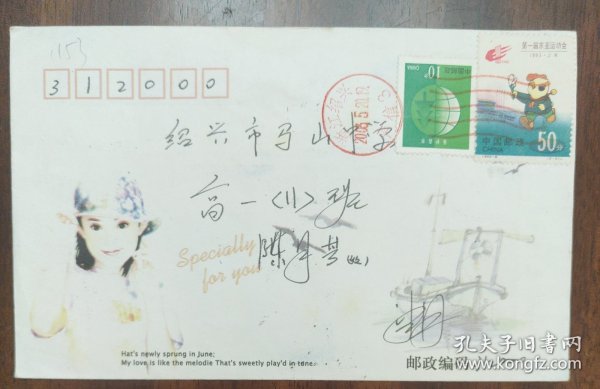 1153
312000
第一届东亚运动会
1993
中国邮政
CHINA
50分
中国邮政
CHINA
10分
2005.5.20.19
绍兴市马山中学
高一〈11〉班
陈月
(收)
Specially
for you
Hat's newly sprung in June;
My love is like the melodie That's sweetly play'd in tune.
邮政编码
孔夫子旧书网
www.kongfz.com